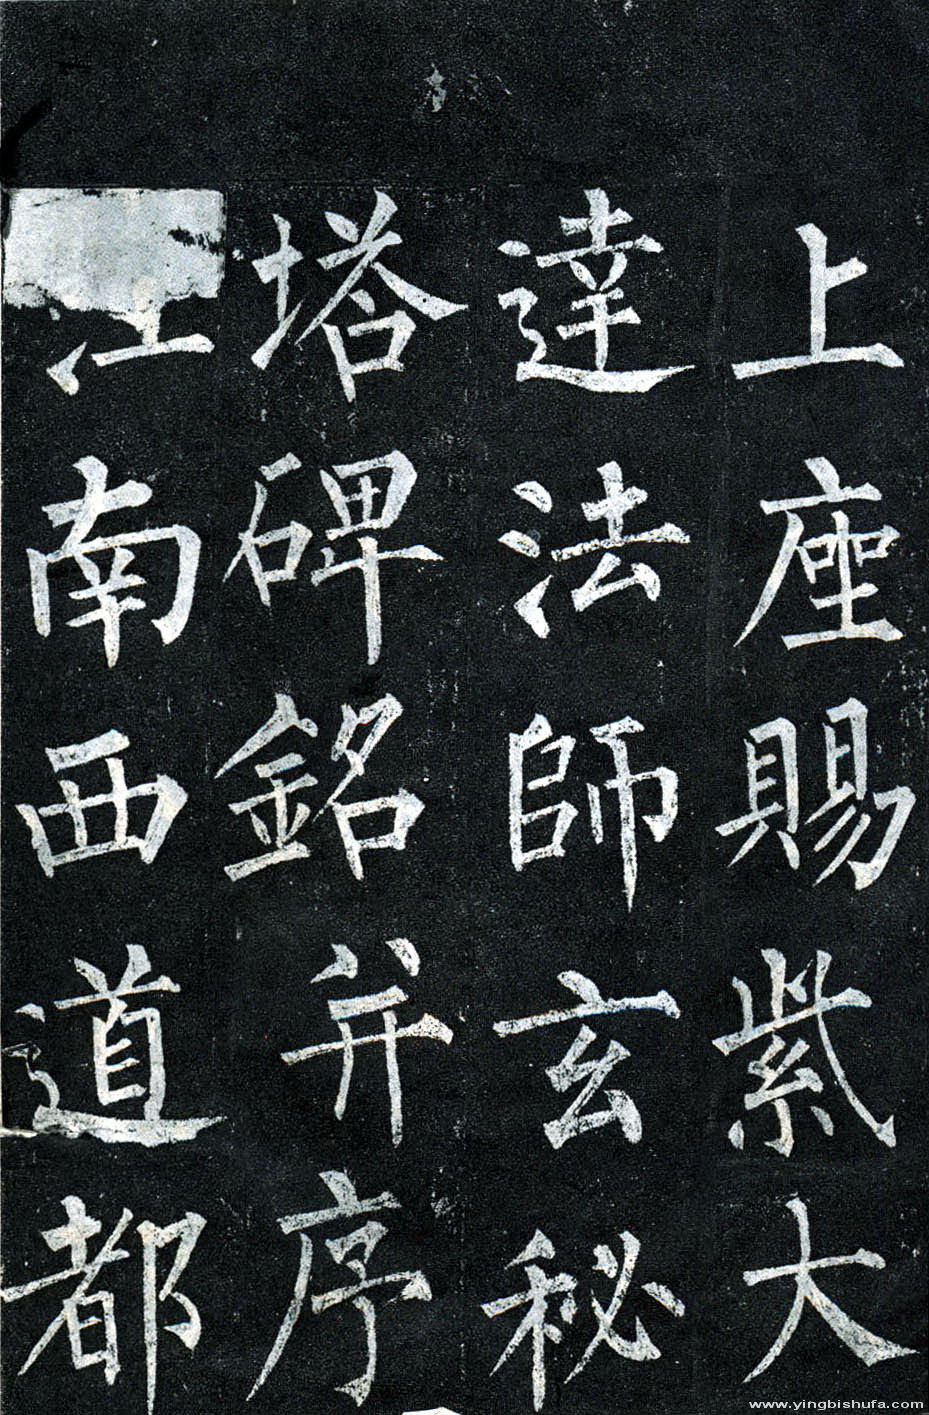 上座賜紫大
達法師玄秘
塔碑銘并序
江南西道都
www.yingbishufa.com